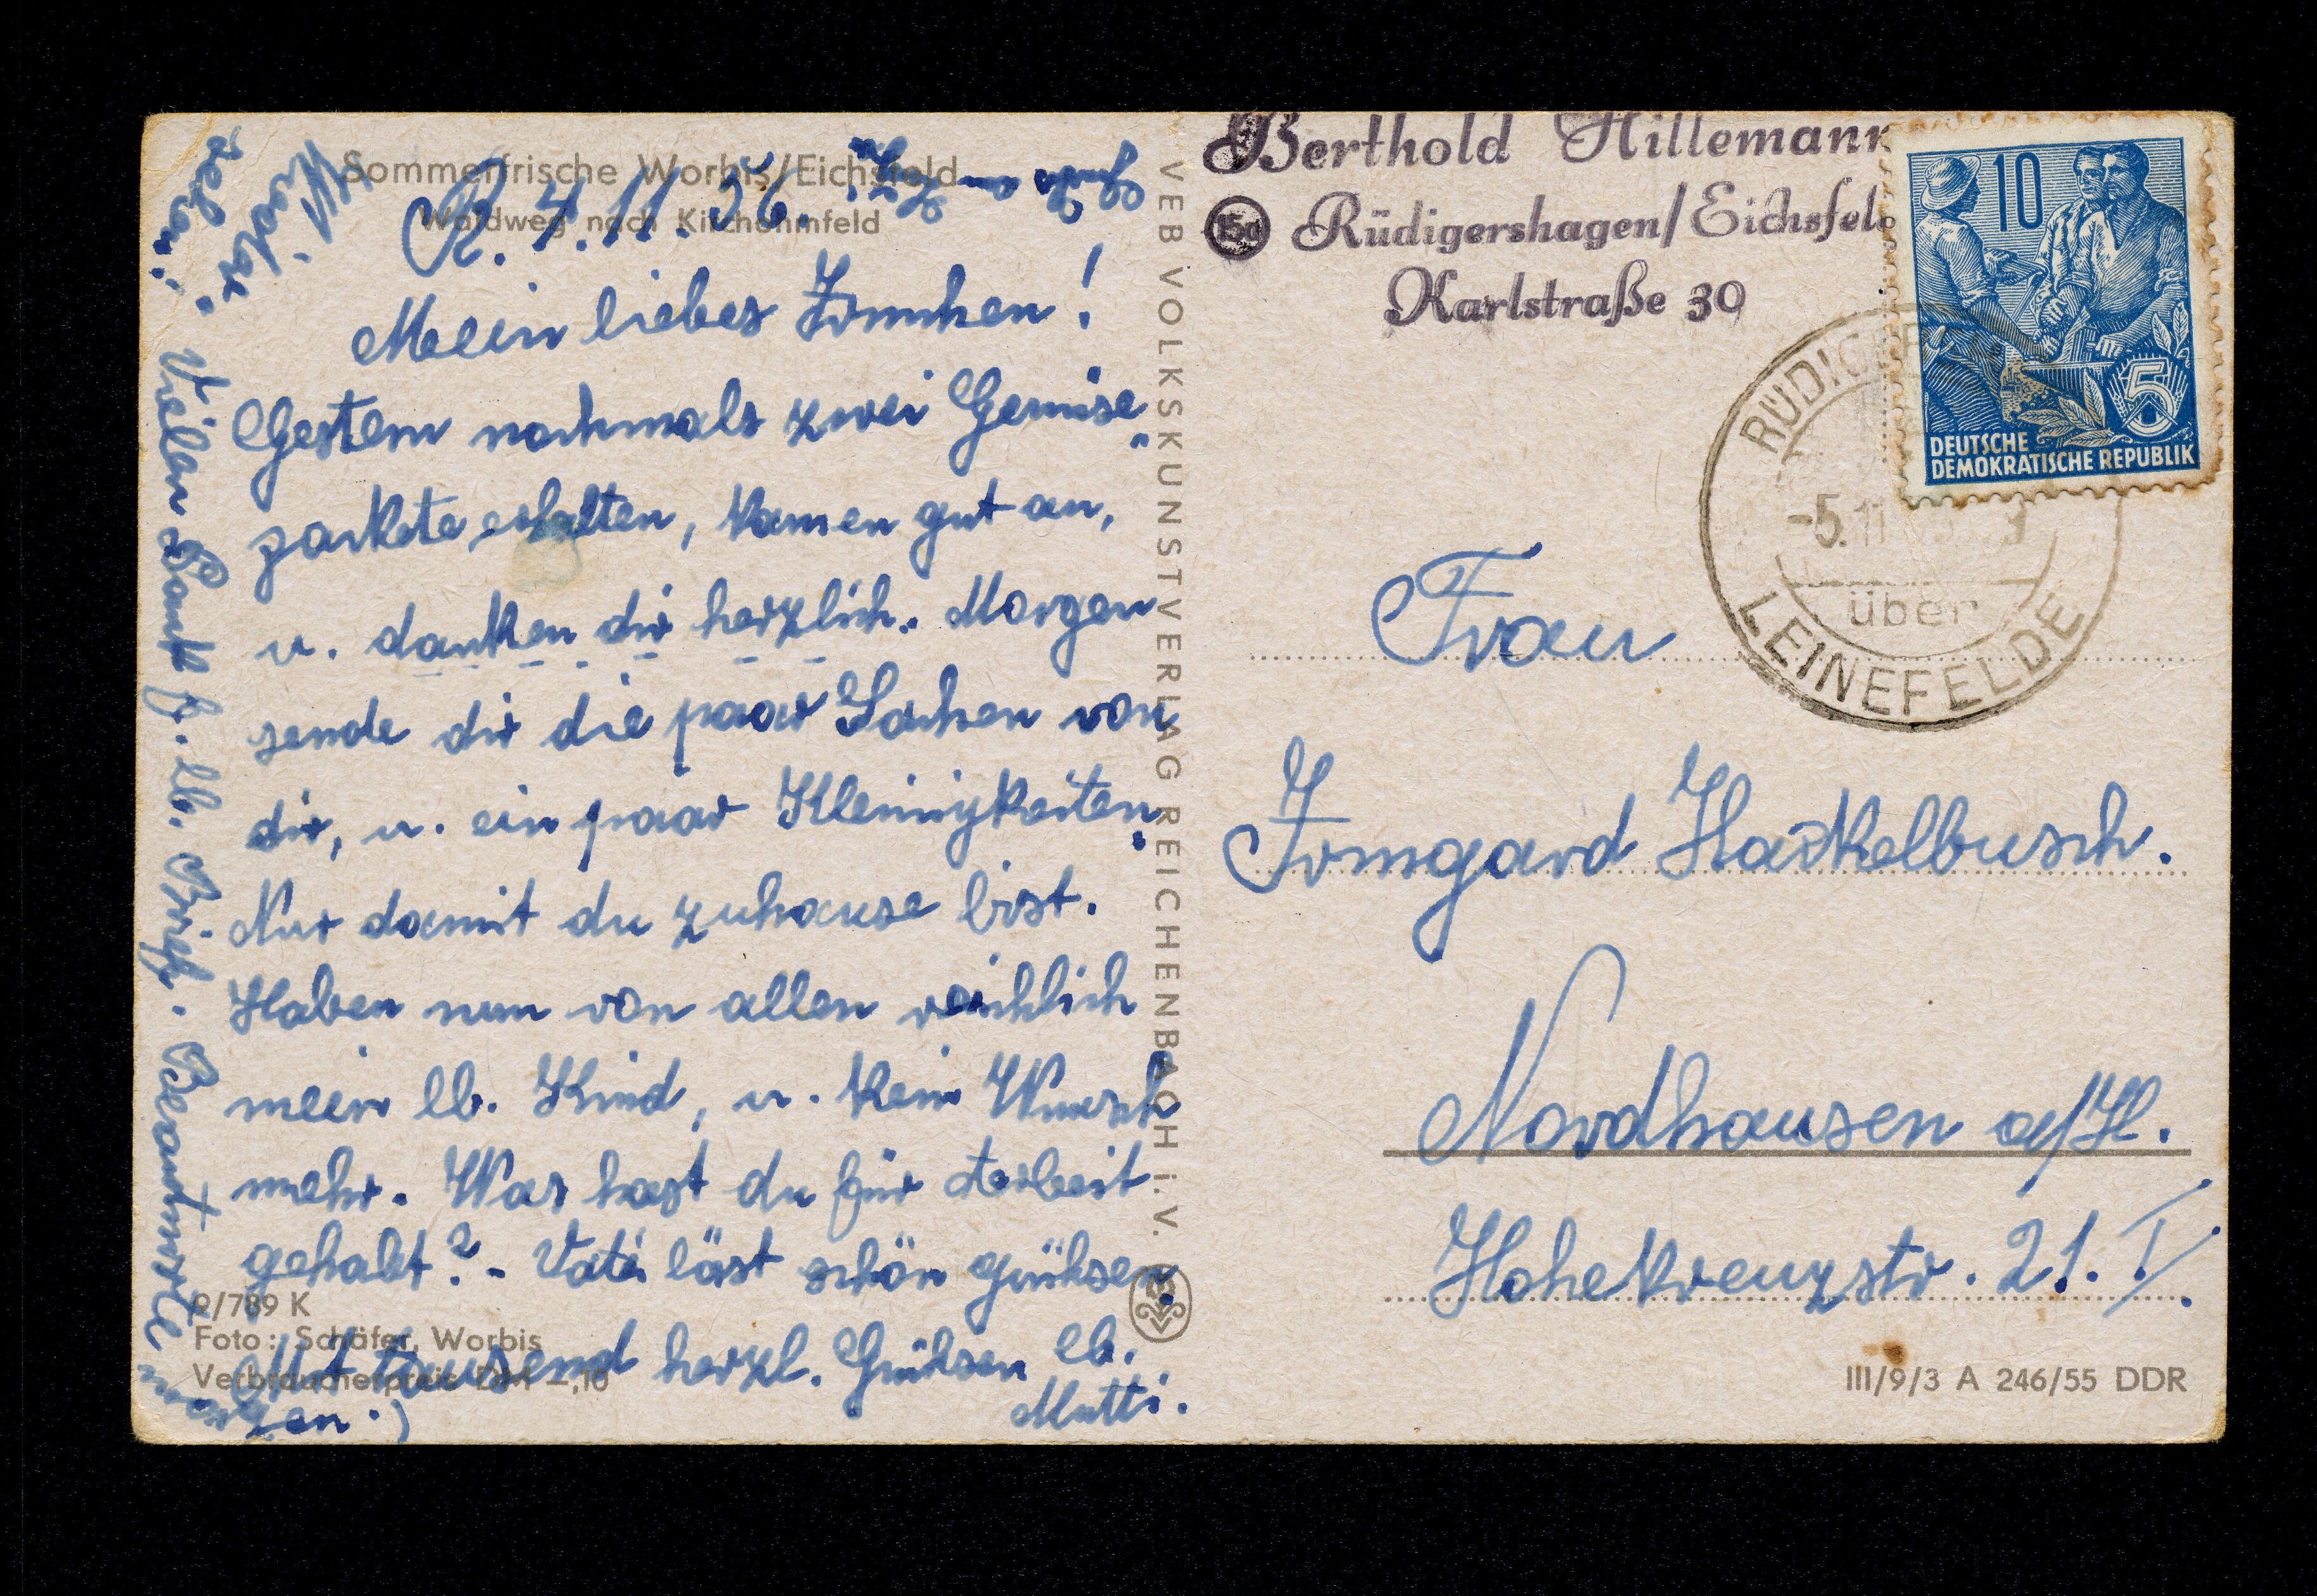 Sommerfrische Worbis/Eichsfeld
Waldweg nach Kirchohmfeld
R. 4.11.56.
Mein liebes Irmchen!
Gestern nochmals zwei Gemüse„
packete erhalten, kamen gut an,
u. danken dir herzlich. Morgen
sende dir die paar Sachen von
dir, u. ein paar Kleinigkeiten.
Nur damit du zuhause bist.
Haben nun von allen reichlich
mein lb. Kind, u. kein Wunsch
mehr. Was hast du für Arbeit
gehabt? - Vati läst schön grühsen.
Mit tausend herzl. Grühsen lb.
Mutti.
Vielen Dank f. lb. Brief. Beantworte
morgen.)
Wieder
sehen!
Q/789 K
Foto: Schäfer, Worbis
Verbraucherpreis DM -,10
VEB VOLKSKUNSTVERLAG REICHENBACH i. V.
Berthold Hillemann
15a Rüdigershagen/Eichsfeld
Karlstraße 30
10
5
DEUTSCHE
DEMOKRATISCHE REPUBLIK
-5.11
über
LEINEFELDE
Frau
Irmgard Hackelbusch.
Nordhausen a/H.
Hohekreuzstr. 21. I.
III/9/3 A 246/55 DDR